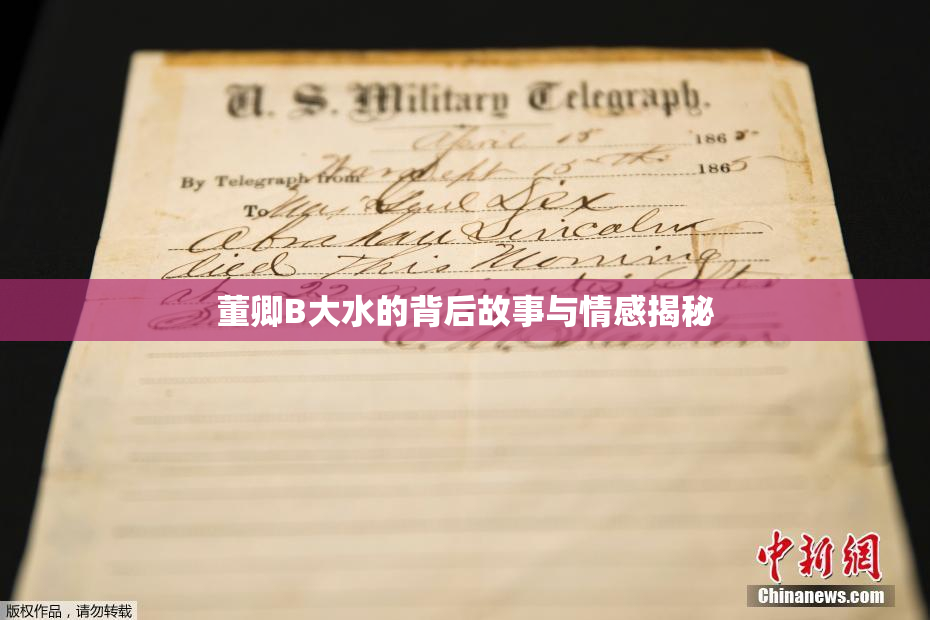 U. S. Military Telegraph.
April 15 1865
By Telegraph from War Dept 15th 1865
To Maj Genl Dix
Abraham Lincoln
died This Morning
at 22 minutes after
董卿B大水的背后故事与情感揭秘
E. M. Stanton
中新网
Chinanews.com
版权作品，请勿转载